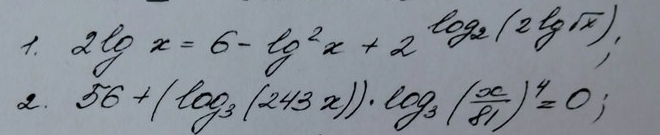 1. 2lg x = 6 - lg²x + 2^(log₂(2lg√x));
2. 56 + (log₃(243x)) · log₃(x/81)⁴ = 0;